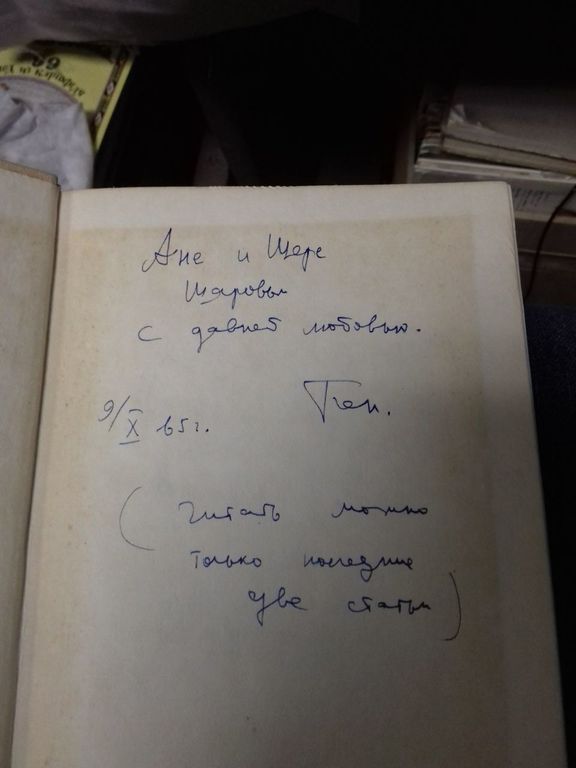 Ане и Шере
Шаровым
с давней любовью.
9/X 65г.
Ген.
(читать можно
только последние
две статьи)